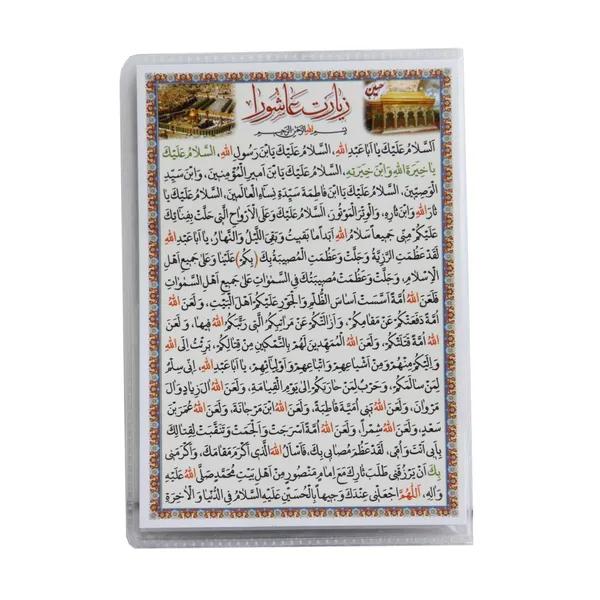 زیارت عاشورا
حسین
بسم الله الرحمن الرحیم
اَلسَّلامُ عَلَیْكَ یا اَبا عَبْدِاللهِ، اَلسَّلامُ عَلَیْكَ یَابْنَ رَسُولِ اللهِ، اَلسَّلامُ عَلَیْكَ
یا خِیَرَةَ اللهِ وَابْنَ خِیَرَتِهِ، اَلسَّلامُ عَلَیْكَ یَابْنَ اَمیرِ الْمُؤْمِنینَ، وَابْنَ سَیِّدِ
الْوَصِیّینَ، اَلسَّلامُ عَلَیْكَ یَابْنَ فاطِمَةَ سَیِّدَةِ نِساءِ الْعالَمینَ، اَلسَّلامُ عَلَیْكَ یا
ثارَ اللهِ وَابْنَ ثارِهِ، وَالْوِتْرَ الْمَوْتُورَ، اَلسَّلامُ عَلَیْكَ وَعَلَی الْاَرْواحِ الَّتی حَلَّتْ بِفِنائِكَ
عَلَیْكُمْ مِنّی جَمیعاً سَلامُ اللهِ اَبَداً ما بَقیتُ وَبَقِیَ اللَّیْلُ وَالنَّهارُ، یا اَبا عَبْدِاللهِ
لَقَدْ عَظُمَتِ الرَّزِیَّةُ وَجَلَّتْ وَعَظُمَتِ الْمُصیبَةُ بِكَ (بِكُمْ) عَلَیْنا وَعَلی جَمیعِ اَهْلِ
الْاِسْلامِ، وَجَلَّتْ وَعَظُمَتْ مُصیبَتُكَ فِی السَّمواتِ عَلی جَمیعِ اَهْلِ السَّمواتِ
فَلَعَنَ اللهُ اُمَّةً اَسَّسَتْ اَساسَ الظُّلْمِ وَالْجَوْرِ عَلَیْكُمْ اَهْلَ الْبَیْتِ، وَلَعَنَ اللهُ
اُمَّةً دَفَعَتْكُمْ عَنْ مَقامِكُمْ، وَاَزالَتْكُمْ عَنْ مَراتِبِكُمُ الَّتی رَتَّبَكُمُ اللهُ فیها، وَلَعَنَ
اللهُ اُمَّةً قَتَلَتْكُمْ، وَلَعَنَ اللهُ الْمُمَهِّدینَ لَهُمْ بِالتَّمْكینِ مِنْ قِتالِكُمْ، بَرِئْتُ اِلَی اللهِ
وَاِلَیْكُمْ مِنْهُمْ وَمِنْ اَشْیاعِهِمْ وَاَتْباعِهِمْ وَاَوْلِیائِهِمْ، یا اَبا عَبْدِاللهِ، اِنّی سِلْمٌ
لِمَنْ سالَمَكُمْ، وَحَرْبٌ لِمَنْ حارَبَكُمْ اِلی یَوْمِ الْقِیامَةِ، وَلَعَنَ اللهُ آلَ زِیادٍ وَآلَ
مَرْوانَ، وَلَعَنَ اللهُ بَنی اُمَیَّةَ قاطِبَةً، وَلَعَنَ اللهُ ابْنَ مَرْجانَةَ، وَلَعَنَ اللهُ عُمَرَ بْنَ
سَعْدٍ، وَلَعَنَ اللهُ شِمْراً، وَلَعَنَ اللهُ اُمَّةً اَسْرَجَتْ وَاَلْجَمَتْ وَتَنَقَّبَتْ لِقِتالِكَ
بِاَبی اَنْتَ وَاُمّی، لَقَدْ عَظُمَ مُصابی بِكَ، فَاَسْاَلُ اللهَ الَّذی اَكْرَمَ مَقامَكَ، وَاَكْرَمَنی
بِكَ اَنْ یَرْزُقَنی طَلَبَ ثارِكَ مَعَ اِمامٍ مَنْصُورٍ مِنْ اَهْلِ بَیْتِ مُحَمَّدٍ صَلَّی اللهُ عَلَیْهِ
وَآلِهِ، اَللّهُمَّ اجْعَلْنی عِنْدَكَ وَجیهاً بِالْحُسَیْنِ عَلَیْهِ السَّلامُ فِی الدُّنْیا وَالْاخِرَةِ